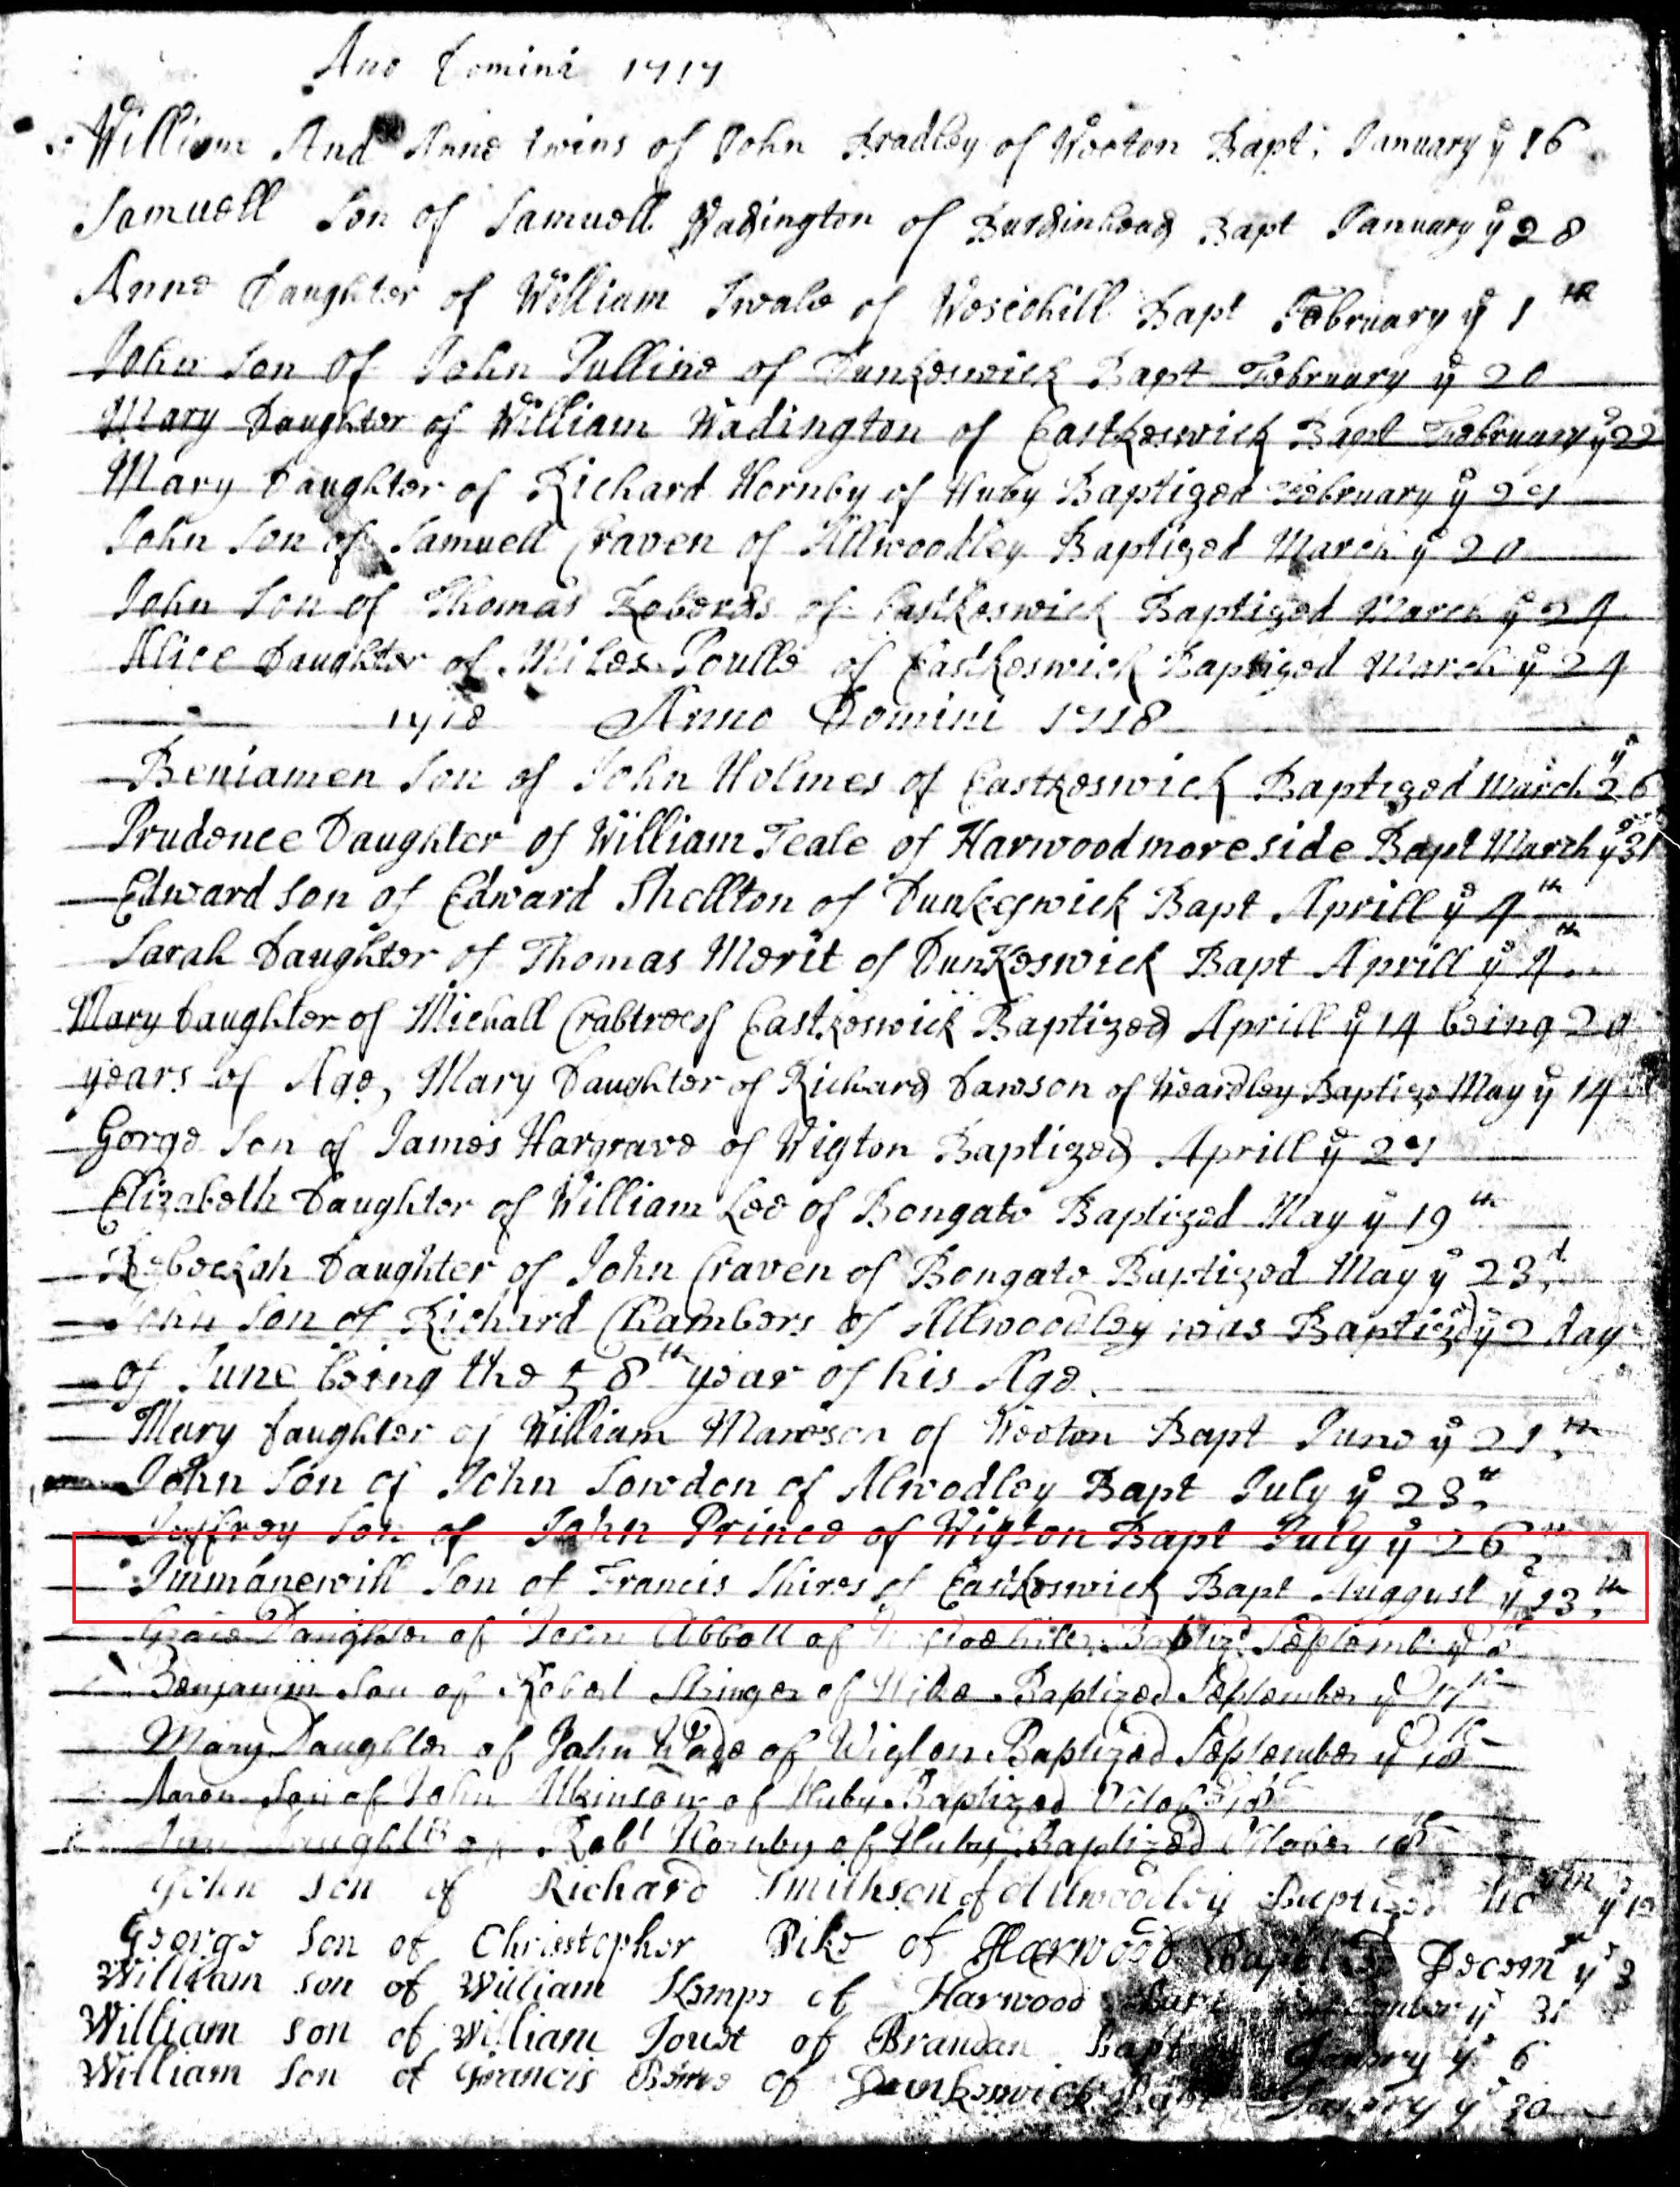 Ano Domini 1717
William And Anne twins of John Bradley of Weeton Bapt; January ye 16
Samuell Son of Samuell Wadington of Burdinhead Bapt January ye 28
Anne Daughter of William Swale of Wescohill Bapt February ye 1 th
John Son of John Pulline of Dunkeswick Bapt February ye 20
Mary Daughter of William Wadington of Eastkeswick Bapt February ye 22
Mary Daughter of Richard Hornby of Huby Baptized February ye
John Son of Samuell Craven of Allwoodley Baptized March ye 20
John Son of Thomas Roberds of Eastkeswick Baptized March ye 24
Alice Daughter of Miles Poulle of Eastkeswick Baptized March ye 24
1718 Anno Domini 1718
Beniamen Son of John Holmes of Eastkeswick Baptized March ye 26
Prudence Daughter of William Teale of Harwoodmoreside Bapt March ye 31
Edward Son of Edward Shellton of Dunkeswick Bapt Aprill ye 4th
Sarah Daughter of Thomas Merit of Dunkeswick Bapt Aprill ye 4th
Mary Daughter of Michall Crabtree of Eastkeswick Baptized Aprill ye 14 being 20
years of Age, Mary Daughter of Richard Dawson of Weardley Baptize May ye 14
Gorge Son of James Hargrave of Wigton Baptized Aprill ye
Elizabeth Daughter of William Lee of Bongate Baptized May ye 19th
Rebeckah Daughter of John Craven of Bongate Baptized May ye 23d
John Son of Richard Chambers of Allwoodley was Baptized ye 2 day
of June being the 58th year of his Age
Mary Daughter of William Mawson of Weeton Bapt June ye 21th
John Son of John Sowden of Alwodley Bapt July ye 23th
Jeffrey Son of John Prince of Wigton Bapt July ye 26th
Immanewill Son of Francis Shires of Eastkeswick Bapt Auggust ye 23th
Grace Daughter of John Abbott of Baptized September ye
Benjamin Son of Robert Stringer of Wike Baptized September ye
Mary Daughter of John Wade of Wigton Baptized September ye 18th
Aaron Son of John Atkinson of Huby Baptized
Ann Daughter of Robt Hornby of Huby Baptized October 18th
John Son of Richard Smithson of Allwoodley Baptized ye
George Son of Christopher Pike of Harwood Baptized Decem ye 3
William Son of William Kemp of Harwood ye 31
William Son of William of Brandan Bapt January ye 6
William Son of Francis of Dunkeswick Bapt January ye 20